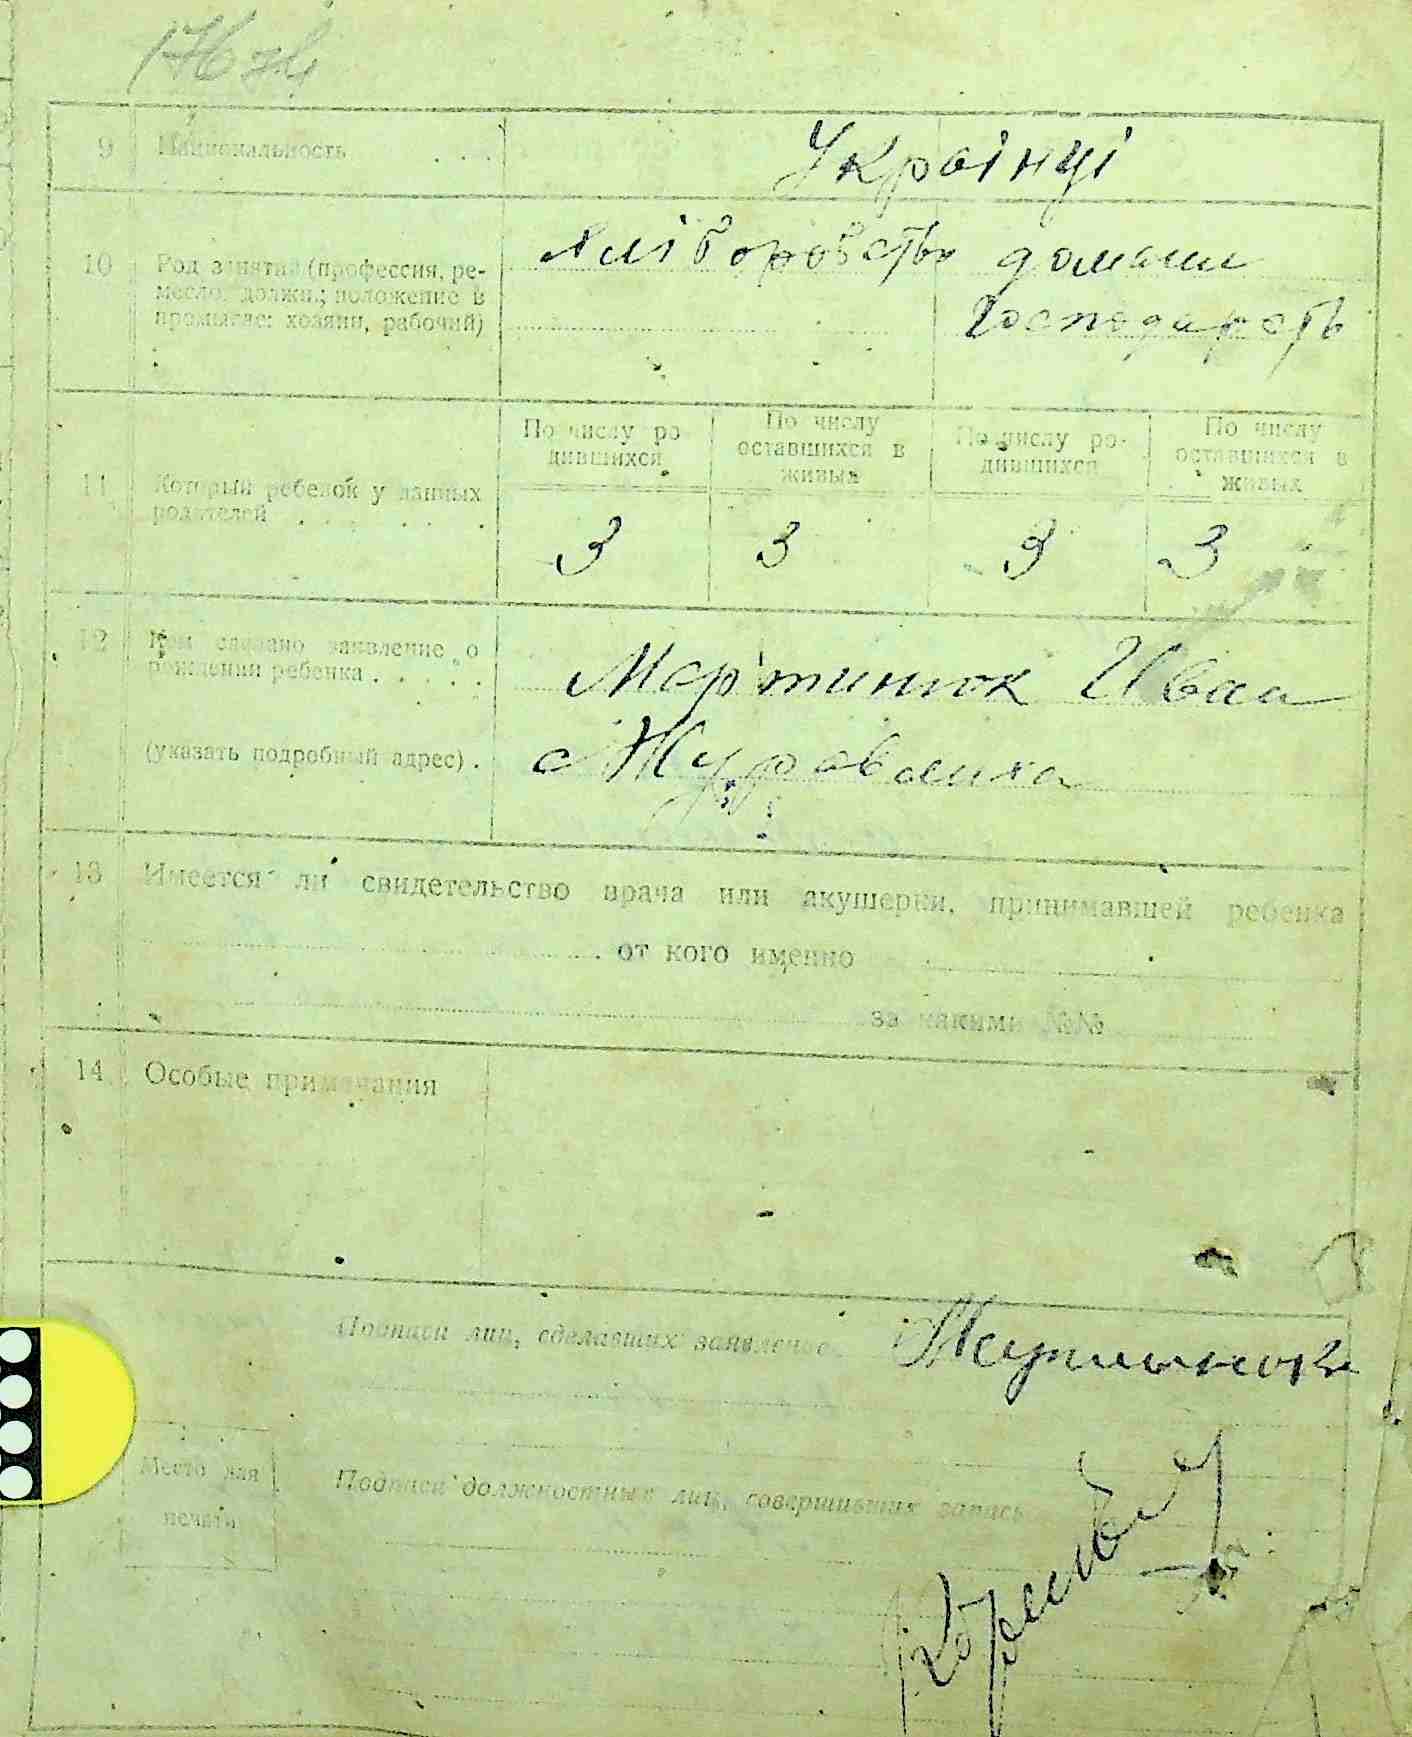 9 Национальность . . . Украінці
10 Род занятий (профессия, ре-
месло, должн.; положение в
промысле: хозяин, рабочий)
Хліборобство домашн
Господарств
11 Который ребенок у данных
родителей . . . . . .
По числу ро-
дившихся
По числу
оставшихся в
живых
По числу ро-
дившихся
По числу
оставшихся в
живых
3 3 3 3
12 Кем сделано заявление о
рождении ребенка . . . . .
Мартинюк Иван
(указать подробный адрес) .
с Журавлиха
13 Имеется ли свидетельство врача или акушерки, принимавшей ребенка
от кого именно
за какими №№
14 Особые примечания
Подписи лиц, сделавших заявление
Место для
печати
Подписи должностных лиц, совершивших запись